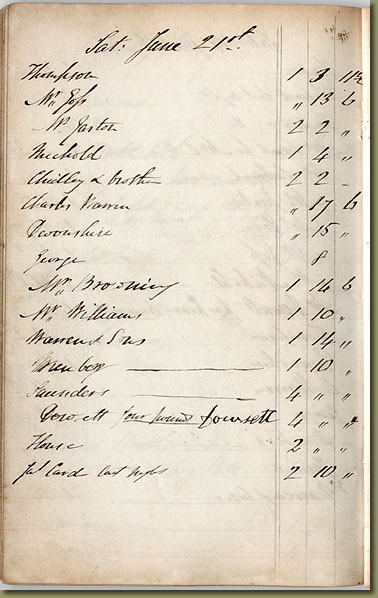 Sat: June 21st.
Thompson 1 3 1½
Mr. Goss " 13 6
Mr. Gaston 2 2 "
Nuchold 1 4 "
Chidley & brother 2 2 -
Charles Warren " 17 6
Devonshire " 15 "
George 8
Mr. Browning 1 14 6
Mr. Williams 1 10 "
Warren & Sons 1 14 "
1 10 "
Saunders 4 " "
Dowsett four pounds fowsett 4 " "
House 2 " "
Card last night 2 10 "